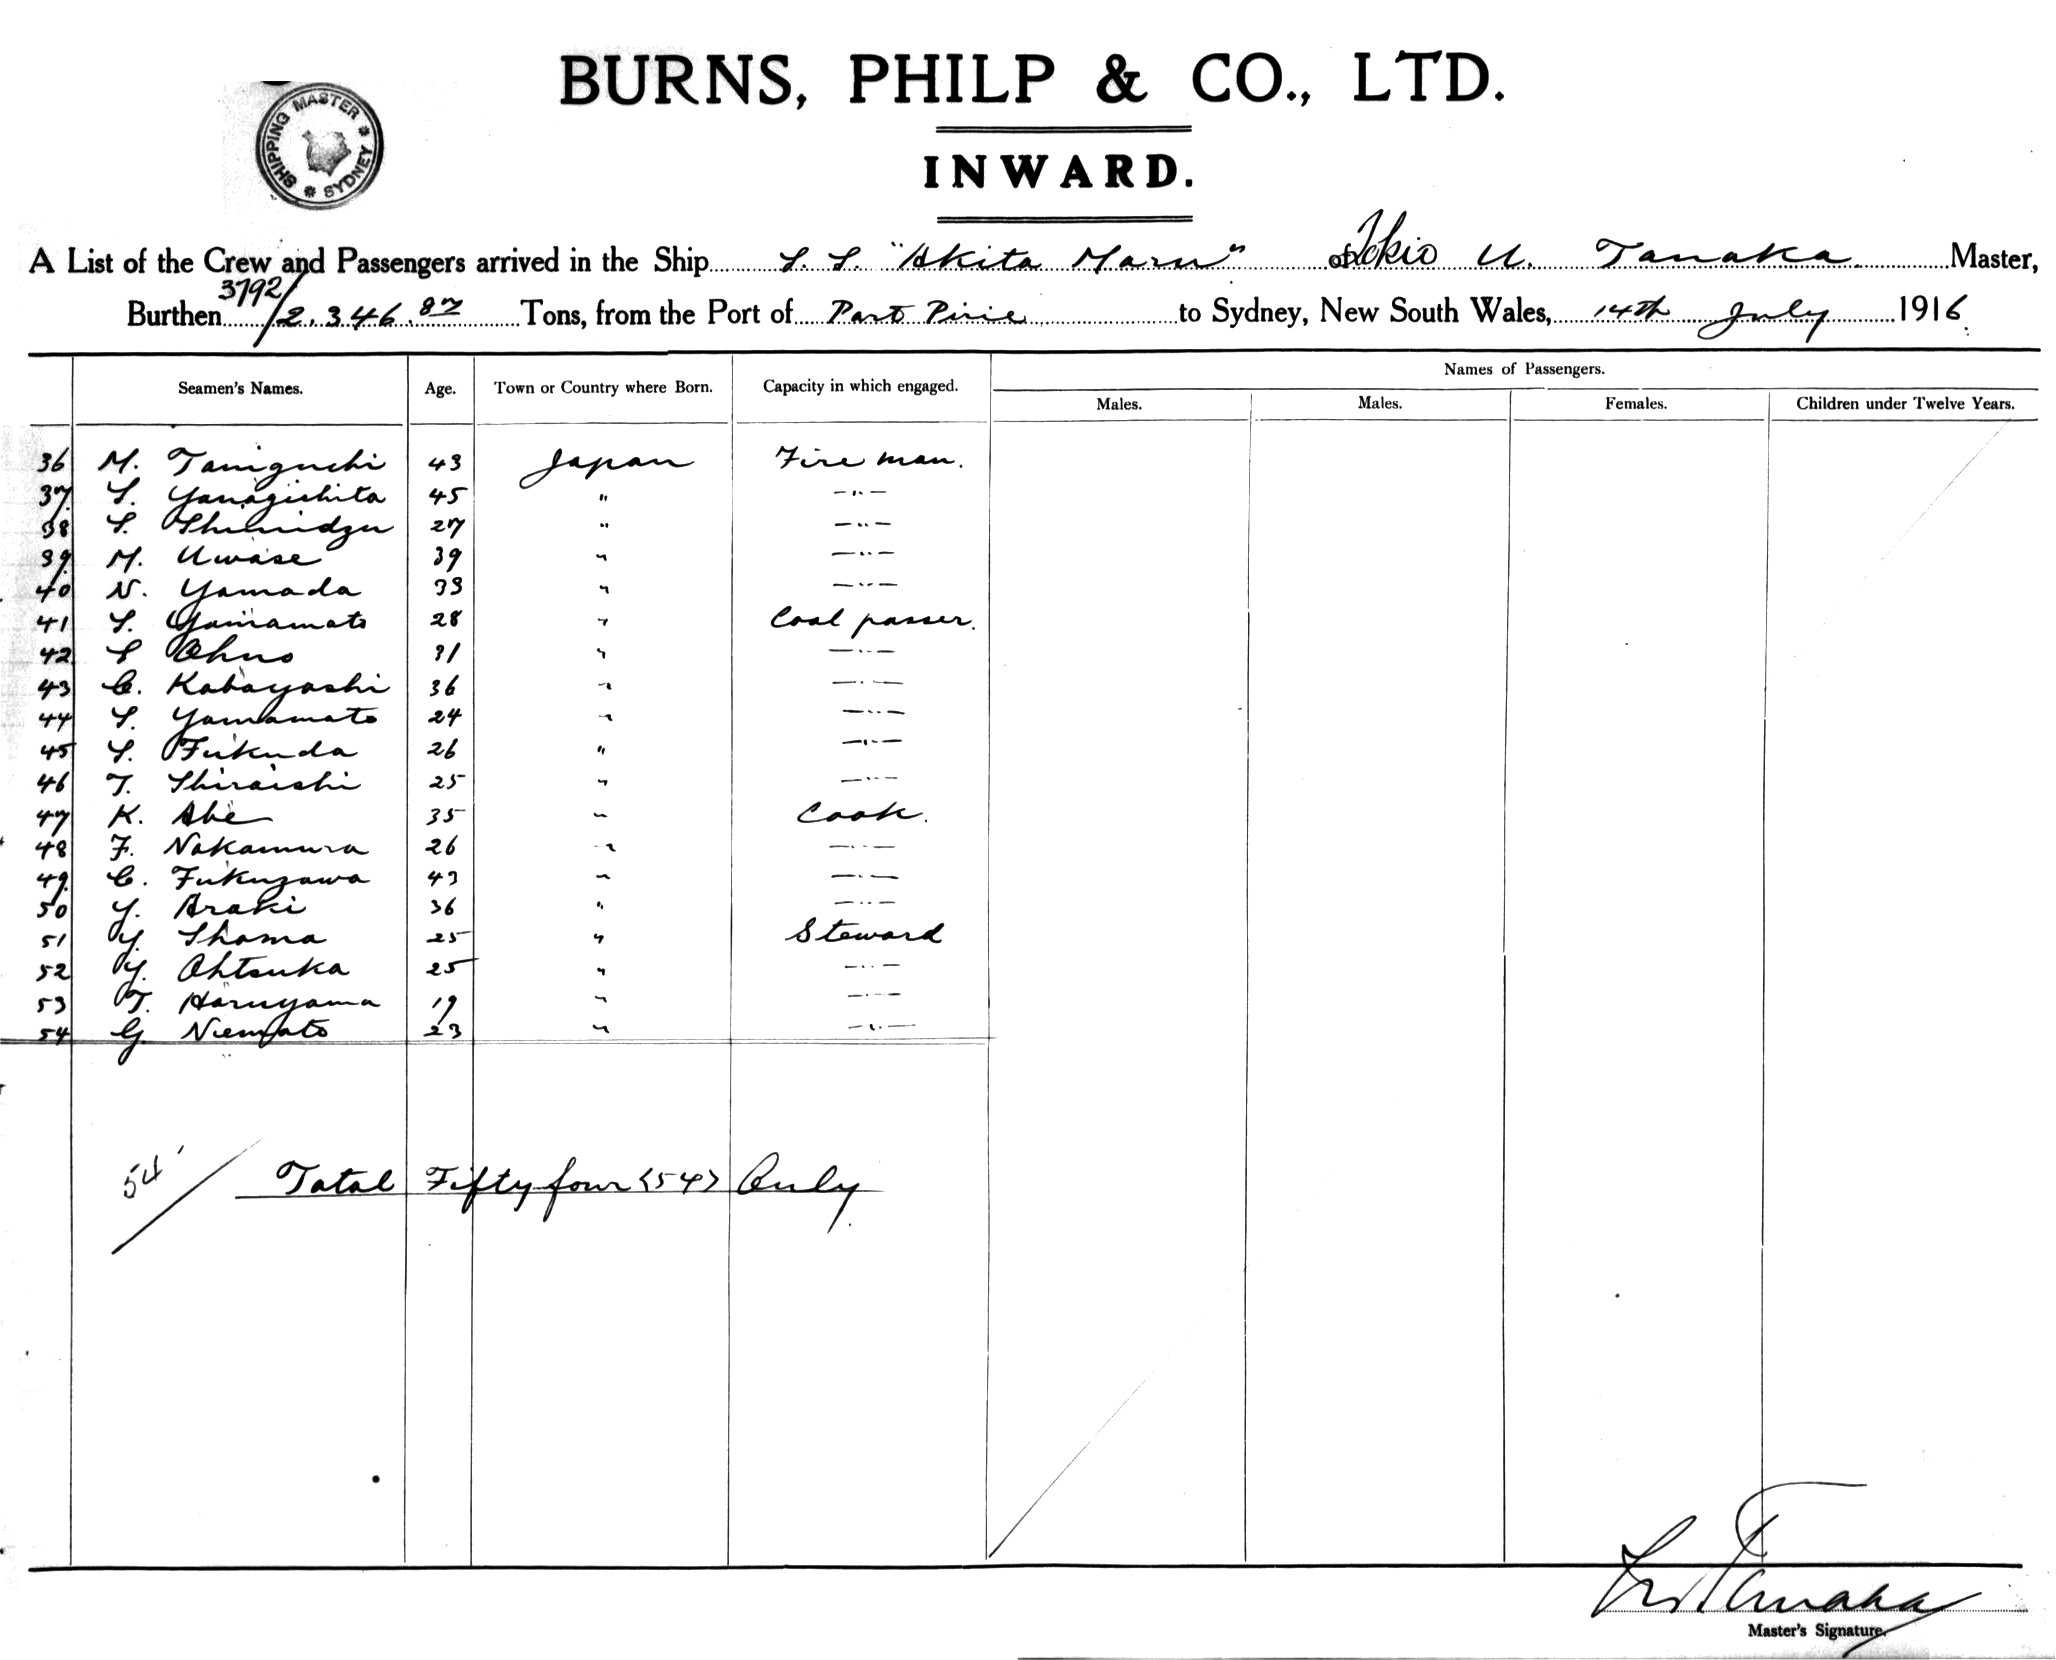 BURNS, PHILP & CO., LTD.
SHIPPING MASTER * SYDNEY *
INWARD.
A List of the Crew and Passengers arrived in the Ship S. S. "Akita Maru" of Tokio U. Tanaka Master,
Burthen 3792/2.346.87 Tons, from the Port of Port Pirie to Sydney, New South Wales, 14th July 1916
Seamen's Names. Age. Town or Country where Born. Capacity in which engaged. Names of Passengers.
Males. Males. Females. Children under Twelve Years.
36 M. Taniguchi 43 Japan Fire man.
37 S. Yanagishita 45 " —"—
38 S. Shimidzu 27 " —"—
39 M. Uwase 39 " —"—
40 N. Yamada 33 " —"—
41 S. Yamamoto 28 " Coal passer.
42 S Ohno 31 " —"—
43 C. Kobayashi 36 " —"—
44 S. Yamamoto 24 " —"—
45 S. Fukuda 26 " —"—
46 T. Shiraishi 25 " —"—
47 K. Abe 35 " Cook.
48 F. Nakamura 26 " —"—
49 C. Fukuzawa 43 " —"—
50 Y. Araki 36 " —"—
51 Y. Shoma 25 " Steward
52 Y. Ohtsuka 25 " —"—
53 T. Haruyama 19 " —"—
54 G. Niemoto 23 " —"—
54 Total Fifty four <54> Only.
Tanaka
Master's Signature.